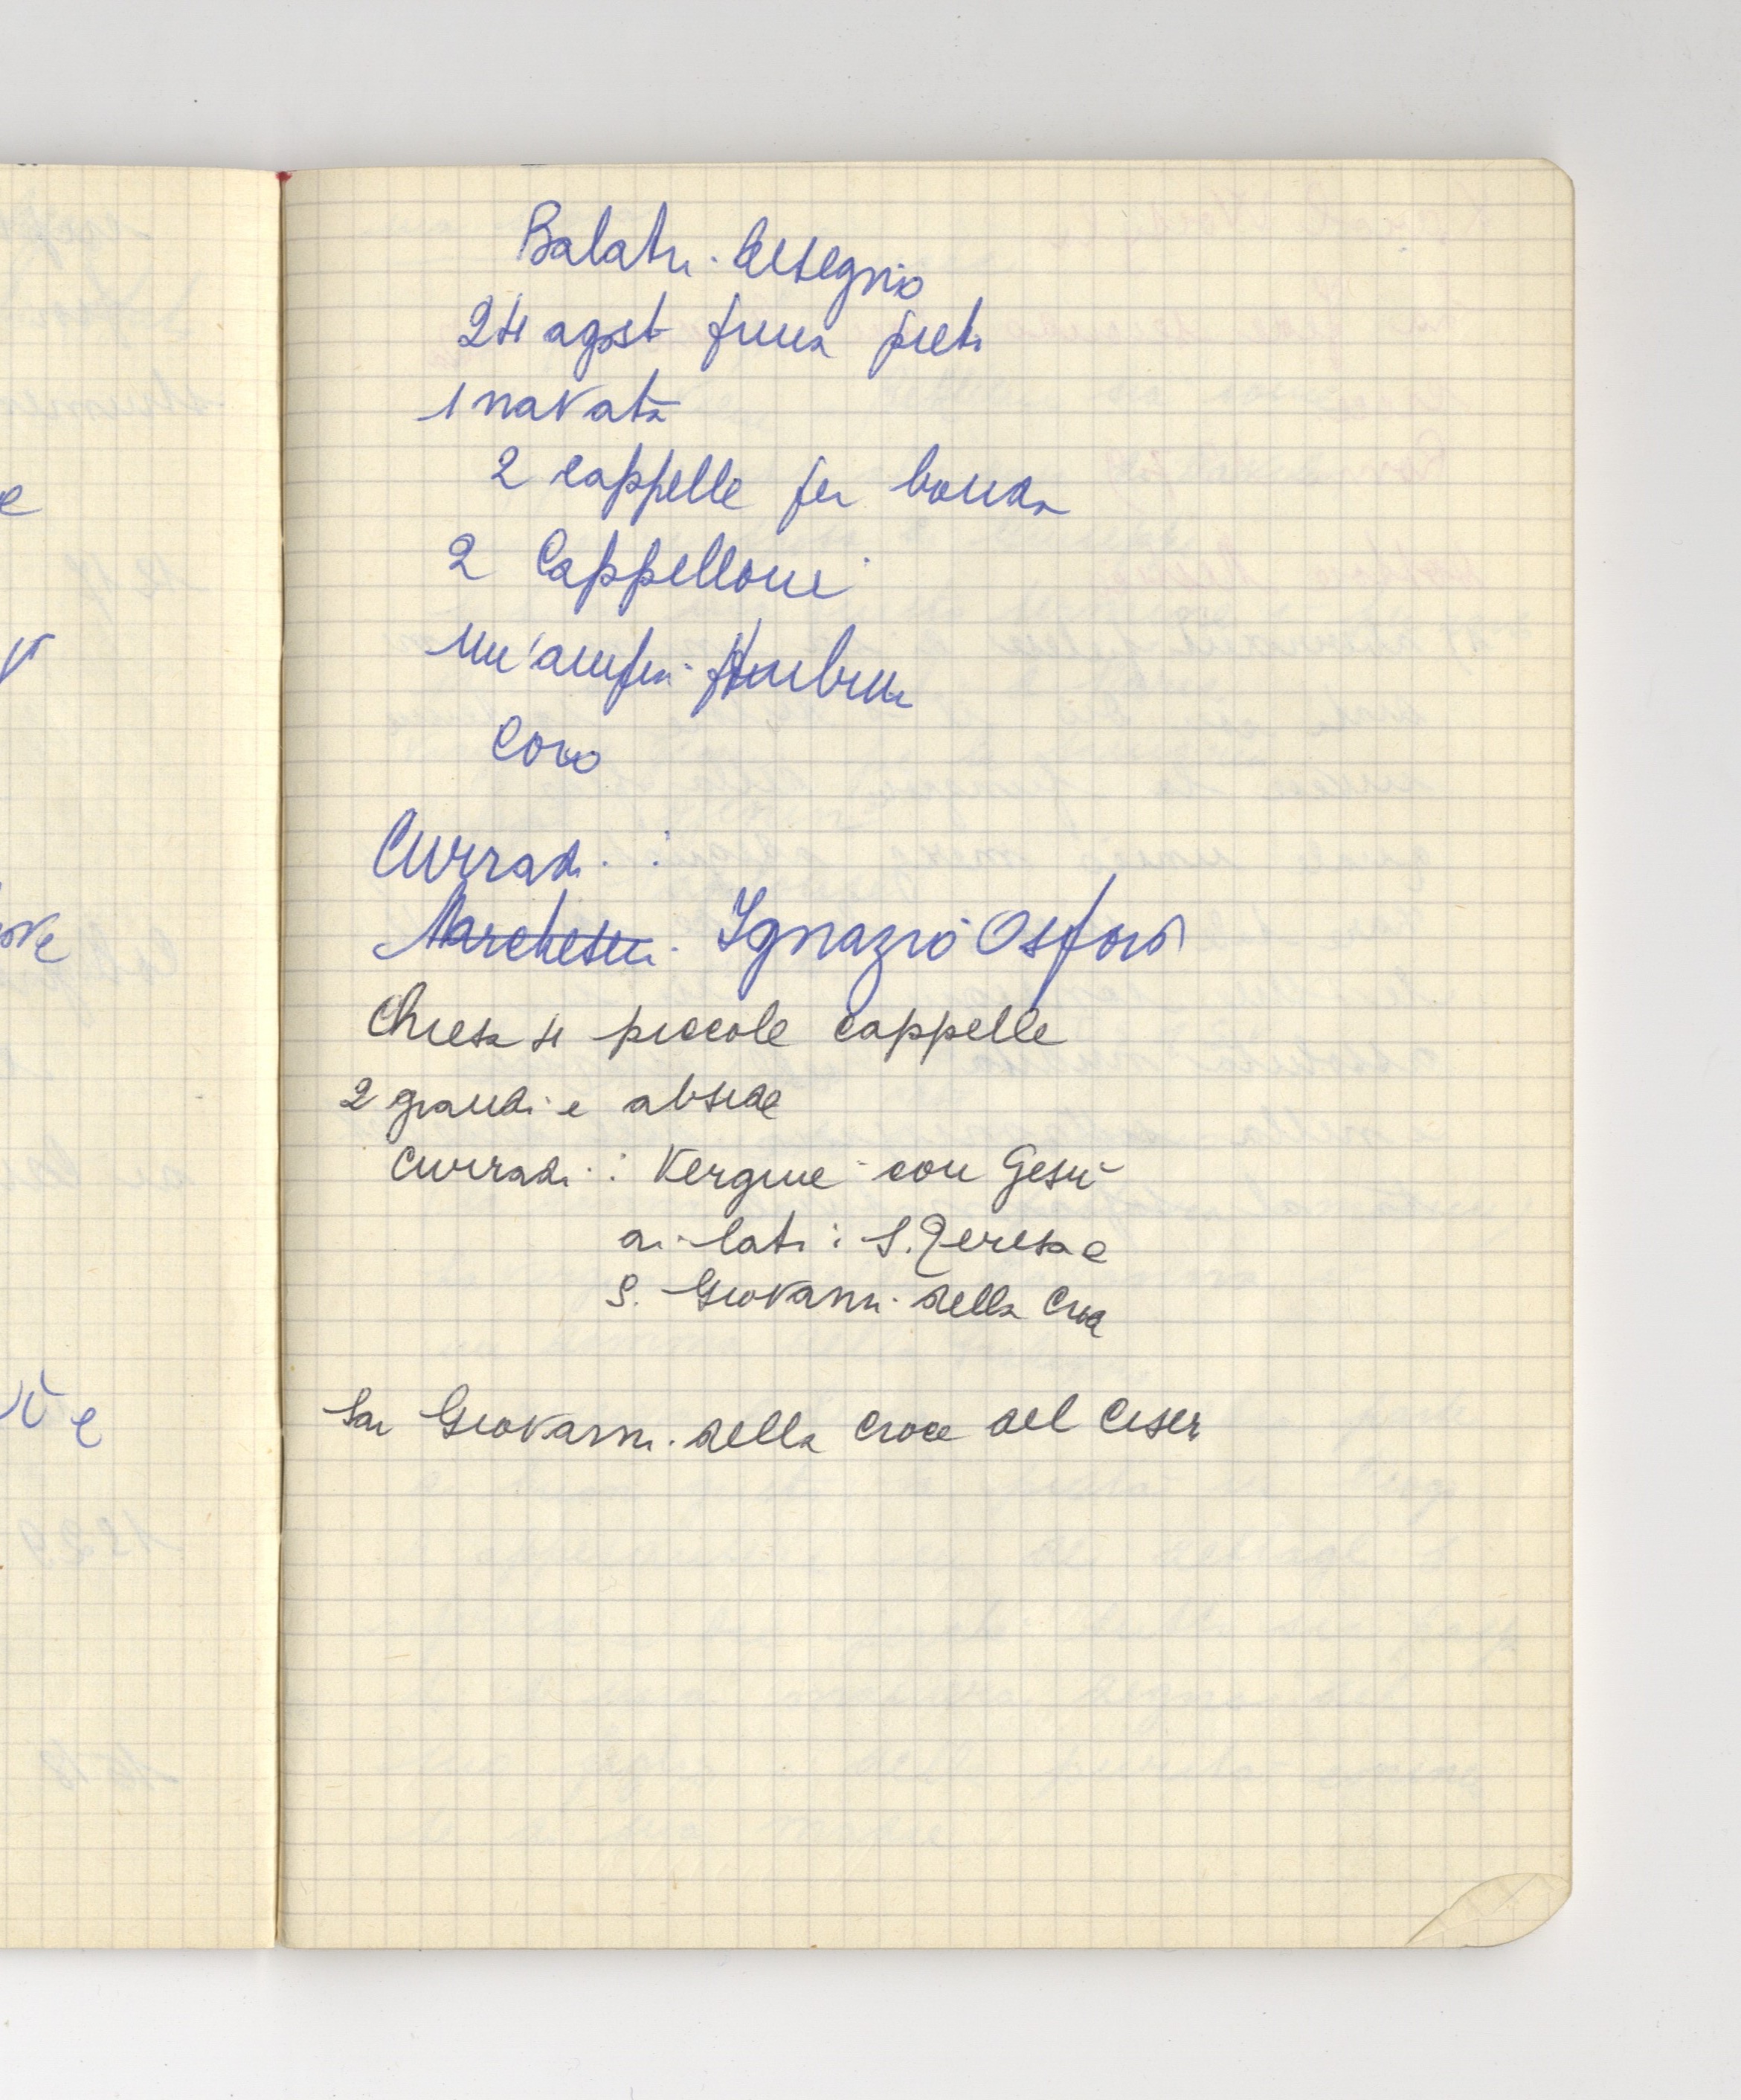 Balatri. disegno
24 agost prima preti
1 navata
2 cappelle per banda
2 Cappelloni
Un'ampia
Coro
Curradi :
Marchesini Ignazio Osford
Chiesa 4 piccole cappelle
2 grandi e abside
Curradi : Vergine con Gesù
ai lati : S. Teresa e
S. Giovanni della Croce
San Giovanni della Croce del Ciseri